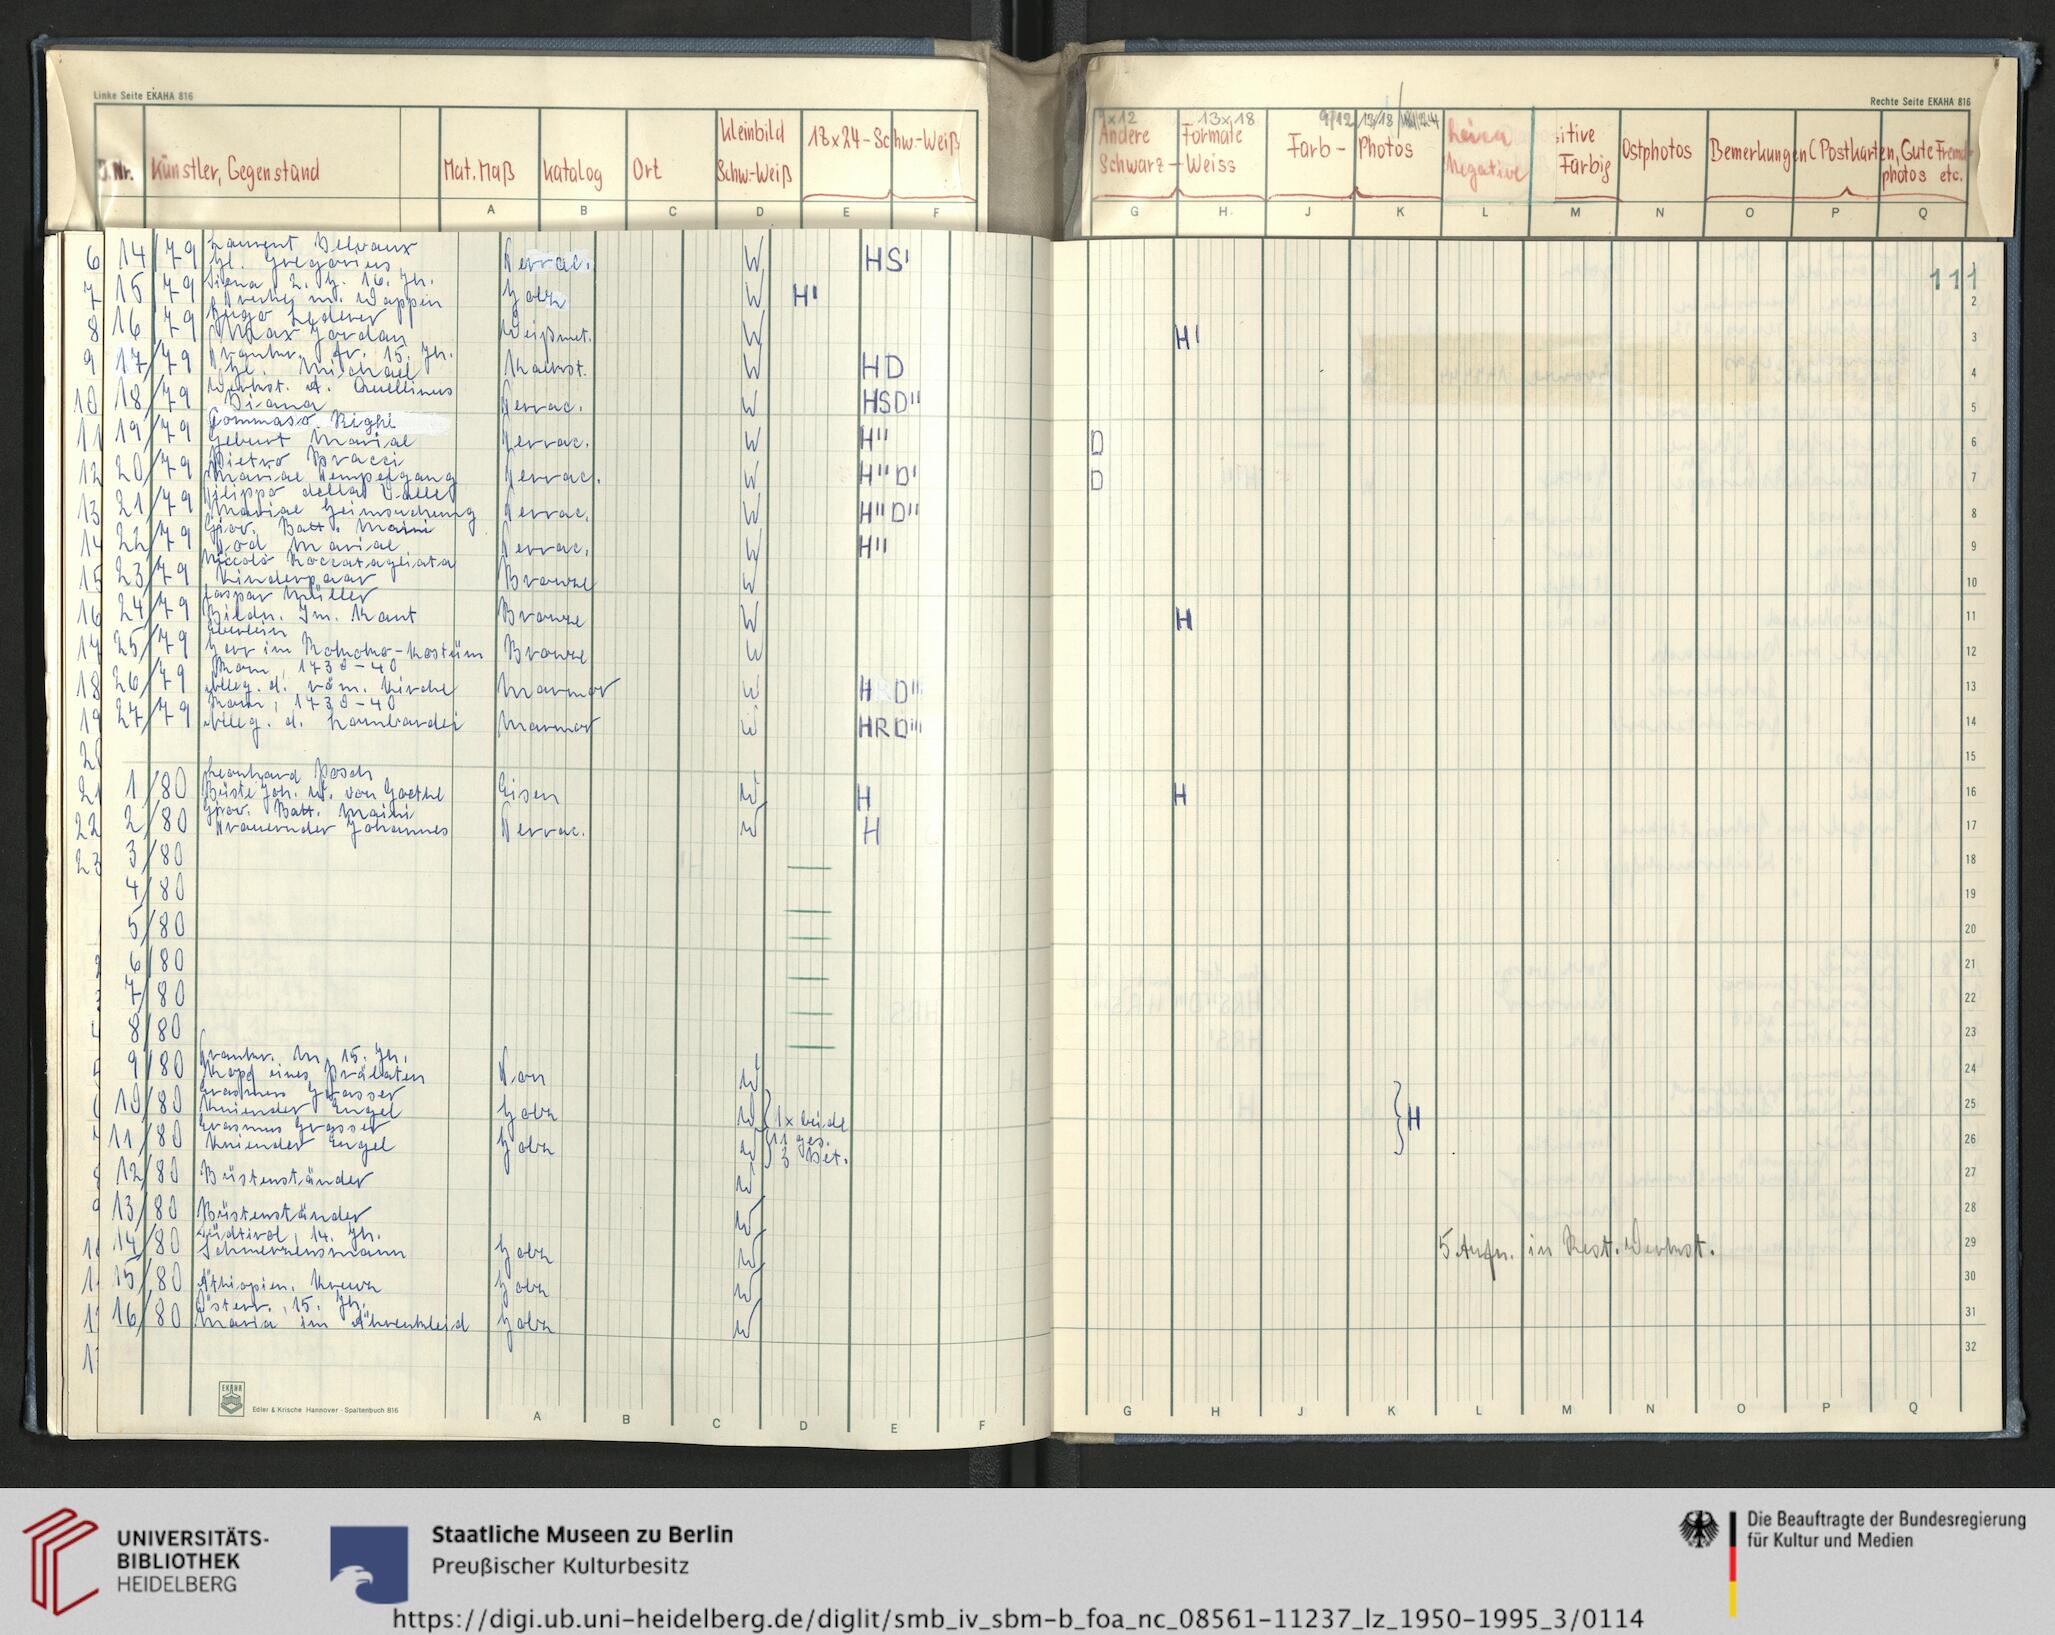 Linke Seite EKAHA 816
Rechte Seite EKAHA 816
J.Nr. Künstler, Gegenstand Mat. Maß Katalog Ort Kleinbild Schw-Weiß 18x24-Schw-Weiß
9x12 13x18 9/12 13/18
Andere Formate Schwarz-Weiss Farb-Photos Leica Negative sitive Farbig Ostphotos Bemerkungen (Postkarten, Gute Fremdphotos etc.
A B C D E F G H J K L M N O P Q
111
6 14/79 Laurent Delvaux
Hl. Gregorius Terrac. W HS' 1
7 15/79 Siena, 2. H. 16. Jh.
Truhe m. Wappen Holz W H' 2
8 16/79 Hugo Lederer
Max Jordan Weißmet. W H' 3
9 17/79 Frankr. Fr. 15. Jh.
Hl. Michael Kalkst. W HD 4
10 18/79 Werkst. A. Quellinus
Diana Terrac. W HSD" 5
11 19/79 Tommaso Righi
Geburt Mariae Terrac. W H" D 6
12 20/79 Pietro Bracci
Mariae Tempelgang Terrac. W H"D' D 7
13 21/79 Filippo della Valle
Mariae Heimsuchung Terrac. W H"D" 8
14 22/79 Giov. Batt. Maini
Tod Mariae Terrac. W H" 9
15 23/79 Niccolò Roccatagliata
Kinderpaar Bronze W 10
16 24/79 Caspar Müller
Bildn. Im. Kant Bronze W H 11
17 25/79 Eberlein
Herr im Rokoko-Kostüm Bronze W 12
18 26/79 Rom, 1730-40
Alleg. d. röm. Kirche Marmor W H D" 13
19 27/79 Rom, 1730-40
Alleg. d. Lombardei Marmor W HRD''' 14
20 15
21 1/80 Leonhard Posch
Büste Joh. W. von Goethe Eisen W H H 16
22 2/80 Giov. Batt. Maini
Trauernder Johannes Terrac. W H 17
23 3/80 18
4/80 19
5/80 20
6/80 21
7/80 22
8/80 23
9/80 Frankr. M. 15. Jh.
Kopf eines Prälaten Ton W 24
10/80 Erasmus Grasser
Kniender Engel Holz W 1x beide H 25
11/80 Erasmus Grasser
Kniender Engel Holz W 11 ges. 3 Det. 26
12/80 Büstenständer W 27
13/80 Büstenständer W 28
14/80 Südtirol, 14. Jh.
Schmerzensmann Holz W 5 Aufn. in Rest. Werkst. 29
15/80 Äthiopien, Kreuz Holz W 30
16/80 Österr., 15. Jh.
Maria im Ährenkleid Holz W 31
32
EKAHA
Edler & Krische Hannover · Spaltenbuch 816
A B C D E F G H J K L M N O P Q
UNIVERSITÄTS-
BIBLIOTHEK
HEIDELBERG
Staatliche Museen zu Berlin
Preußischer Kulturbesitz
Die Beauftragte der Bundesregierung
für Kultur und Medien
https://digi.ub.uni-heidelberg.de/diglit/smb_iv_sbm-b_foa_nc_08561-11237_lz_1950-1995_3/0114